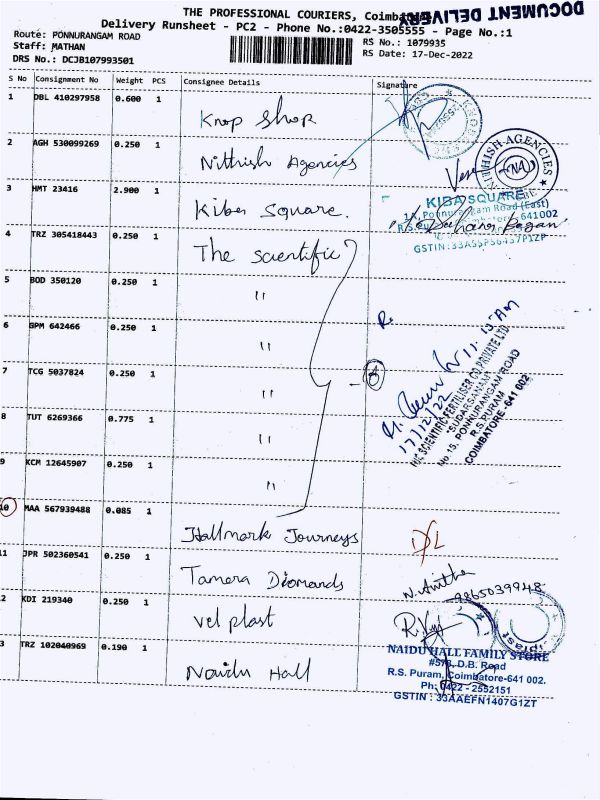 THE PROFESSIONAL COURIERS, Coimbatore
DOCUMENT DELIVERY
Delivery Runsheet - PC2 - Phone No.:0422-3505555 - Page No.:1
Route: PONNURANGAM ROAD
RS No.: 1079935
Staff: MATHAN
RS Date: 17-Dec-2022
DRS No.: DCJB107993501
S No Consignment No Weight PCS Consignee Details Signature
1 DBL 410297958 0.600 1 Knop Shop
2 AGH 530099269 0.250 1 Nithish Agencies
NITHISH AGENCIES
NA
3 HMT 23416 2.900 1 Kiba Square.
KIBA SQUARE
1A, Ponnurangam Road (East)
641002
4 TRZ 305418443 0.250 1 The Scientific
5 BOD 350120 0.250 1 "
6 GPM 642466 0.250 1 "
7 TCG 5037824 0.250 1 "
8 TUT 6269366 0.775 1 "
9 KCM 12645907 0.250 1 "
17/12/22
SCIENTIFIC FERTILISER CO PRIVATE LTD.
"SUDARSANAM"
No 15, PONNURANGAM ROAD
R.S. PURAM,
COIMBATORE - 641 002
10 MAA 567939488 0.085 1 Hallmark Journeys D/L
11 JPR 502360541 0.250 1 Tamera Diomands N. Anitha
9865039948
12 KDI 219340 0.250 1 Vel plast R. Vijy
13 TRZ 102040969 0.190 1 Naidu Hall
NAIDU HALL FAMILY STORE
#578, D.B. Road
R.S. Puram, Coimbatore-641 002.
Ph: 0422 - 2552151
GSTIN : 33AAEFN1407G1ZT